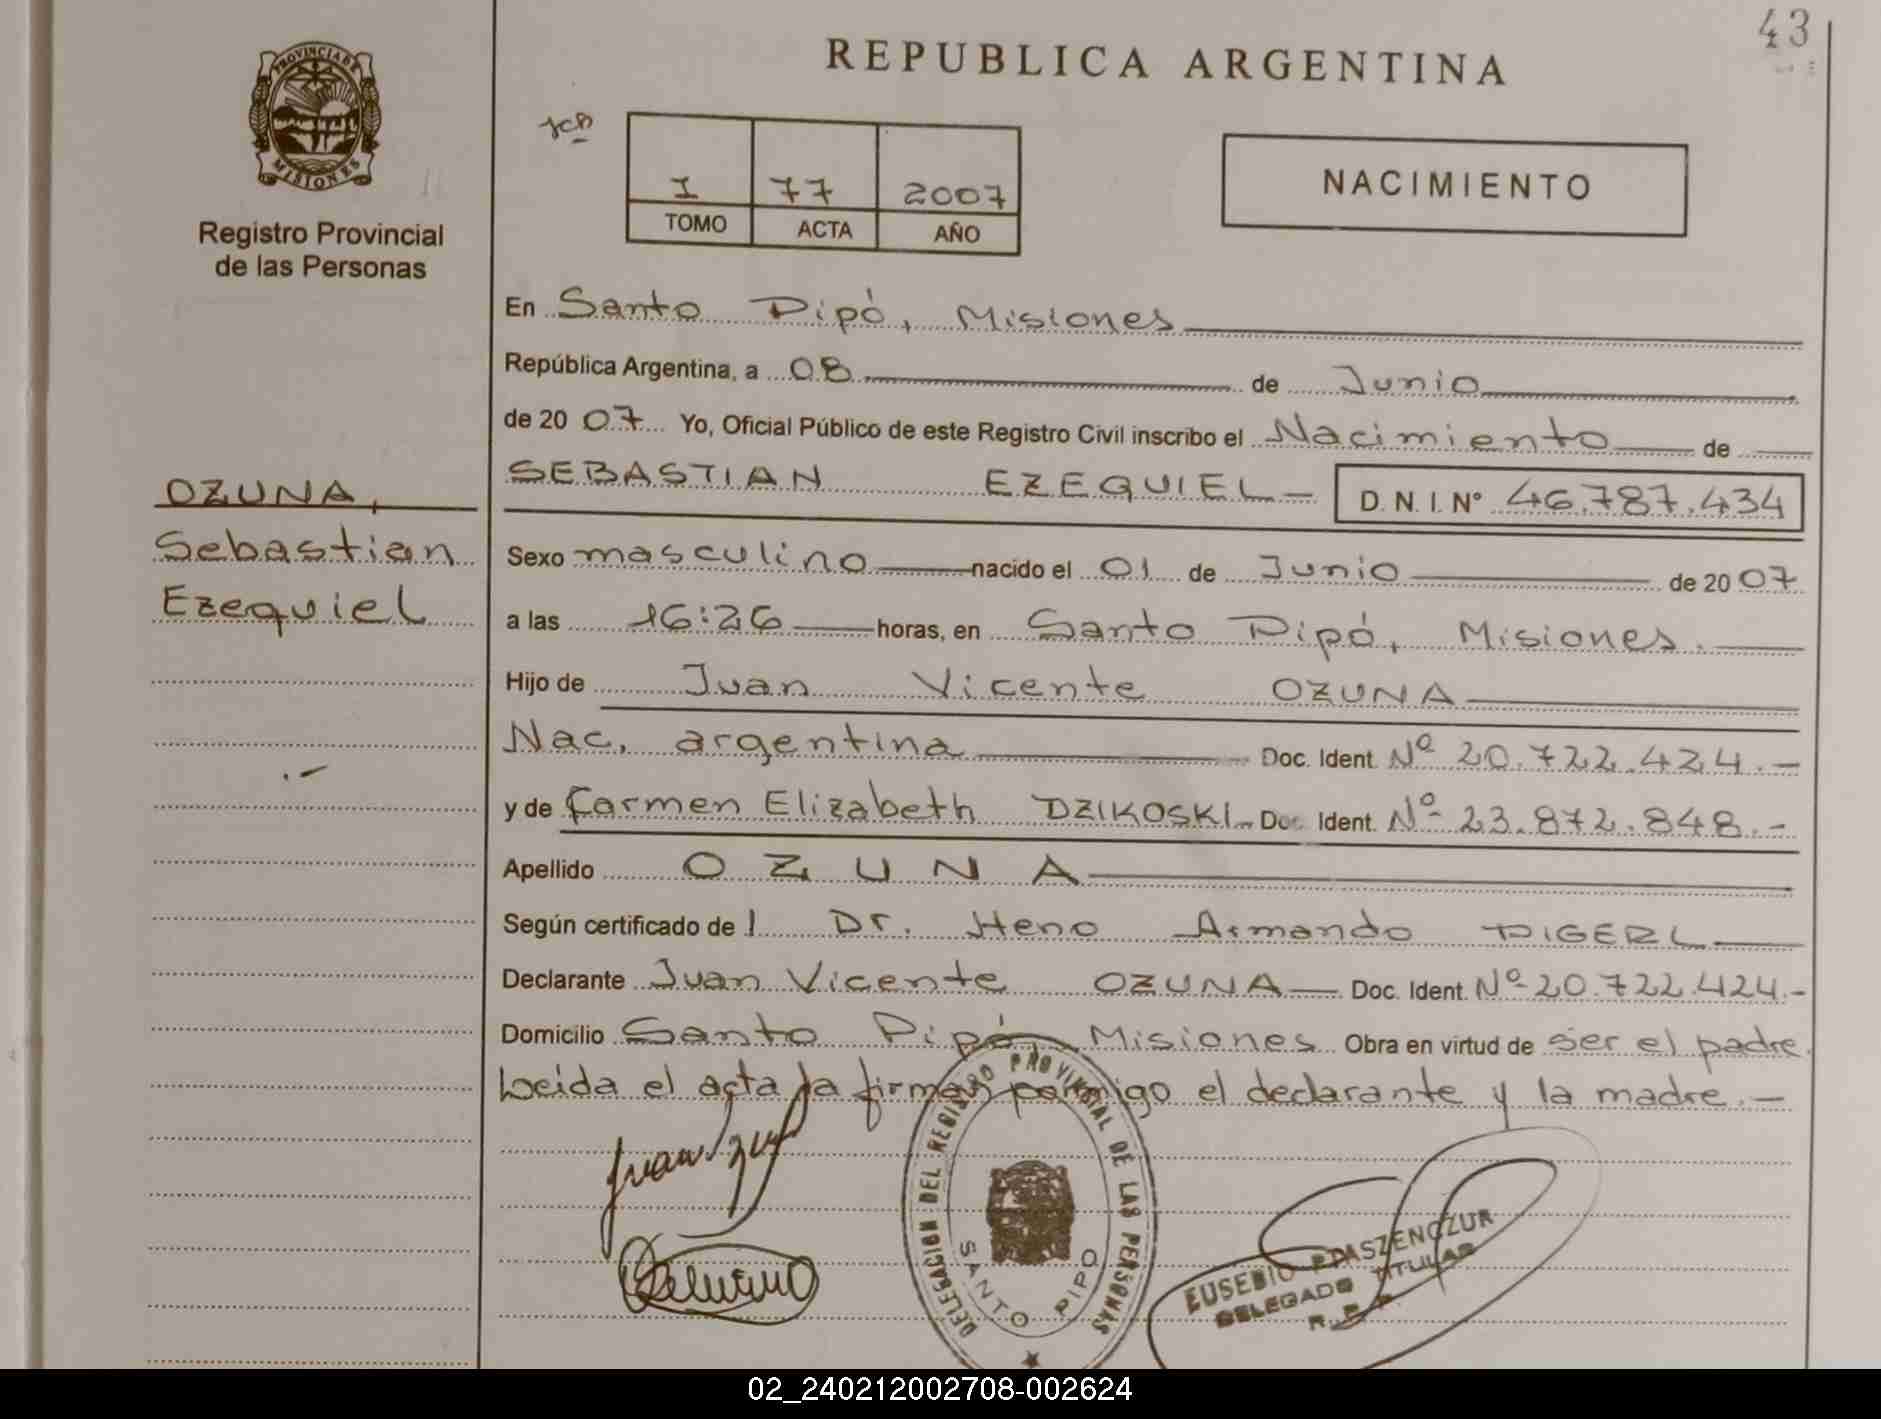 43
REPUBLICA ARGENTINA
PROVINCIA DE
MISIONES
Registro Provincial
de las Personas
I 77 2007
TOMO ACTA AÑO
NACIMIENTO
En Santo Pipó, Misiones
República Argentina, a 08 de Junio
de 2007 Yo, Oficial Público de este Registro Civil inscribo el Nacimiento de
SEBASTIAN EZEQUIEL D. N. I. N° 46.787.434
OZUNA,
Sebastian
Ezequiel
Sexo masculino nacido el 01 de Junio de 2007
a las 16:26 horas, en Santo Pipó, Misiones.
Hijo de Juan Vicente OZUNA
Nac. argentina Doc. Ident. Nº 20.722.424.-
y de Carmen Elizabeth DZIKOSKI Doc. Ident. Nº 23.872.848.-
Apellido OZUNA
Según certificado de l Dr. Heno Armando DIGERL
Declarante Juan Vicente OZUNA Doc. Ident. Nº 20.722.424.-
Domicilio Santo Pipó, Misiones Obra en virtud de ser el padre.
Leida el acta la firman conmigo el declarante y la madre.-
DELEGACION DEL REGISTRO PROVINCIAL DE LAS PERSONAS
SANTO PIPO
EUSEBIO PTASZENCZUR
DELEGADO TITULAR
R. P. P.
02_240212002708-002624